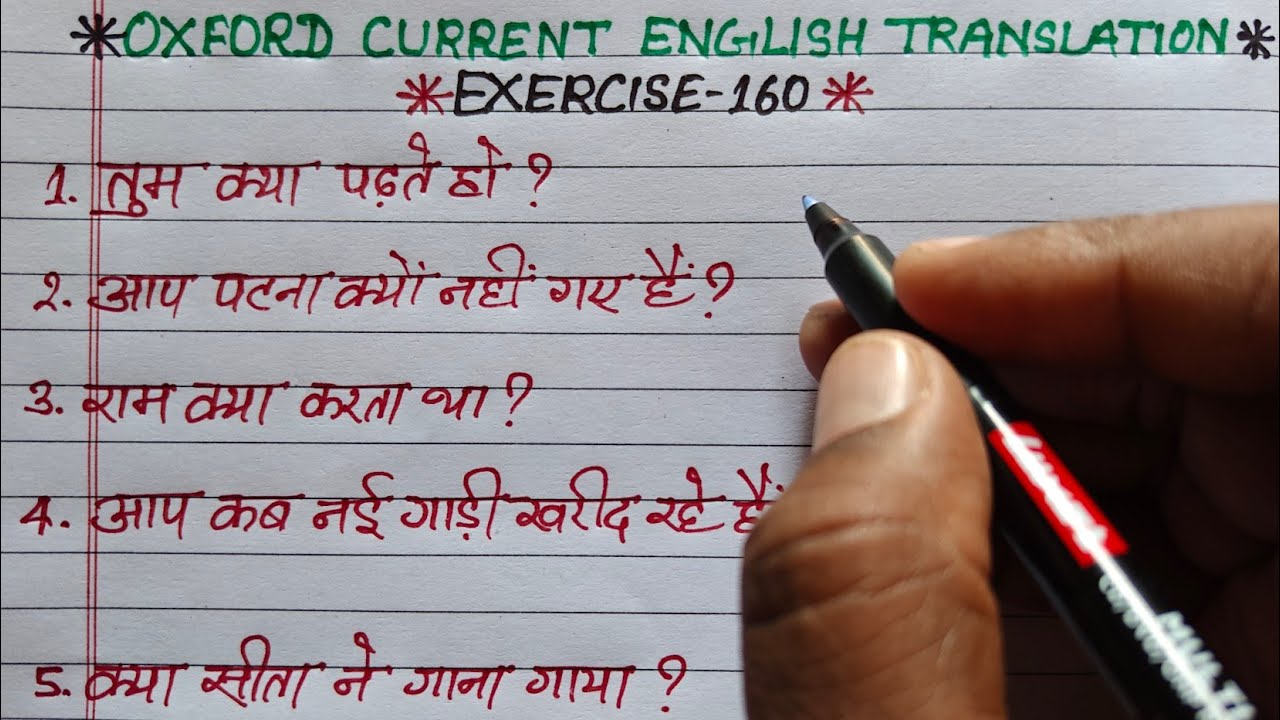 *OXFORD CURRENT ENGLISH TRANSLATION*
*EXERCISE-160*
1. तुम क्या पढ़ते हो ?
2. आप पटना क्यों नहीं गए हैं ?
3. राम क्या करता था ?
4. आप कब नई गाड़ी खरीद रहे हैं
5. क्या सीता ने गाना गाया ?
Luxor